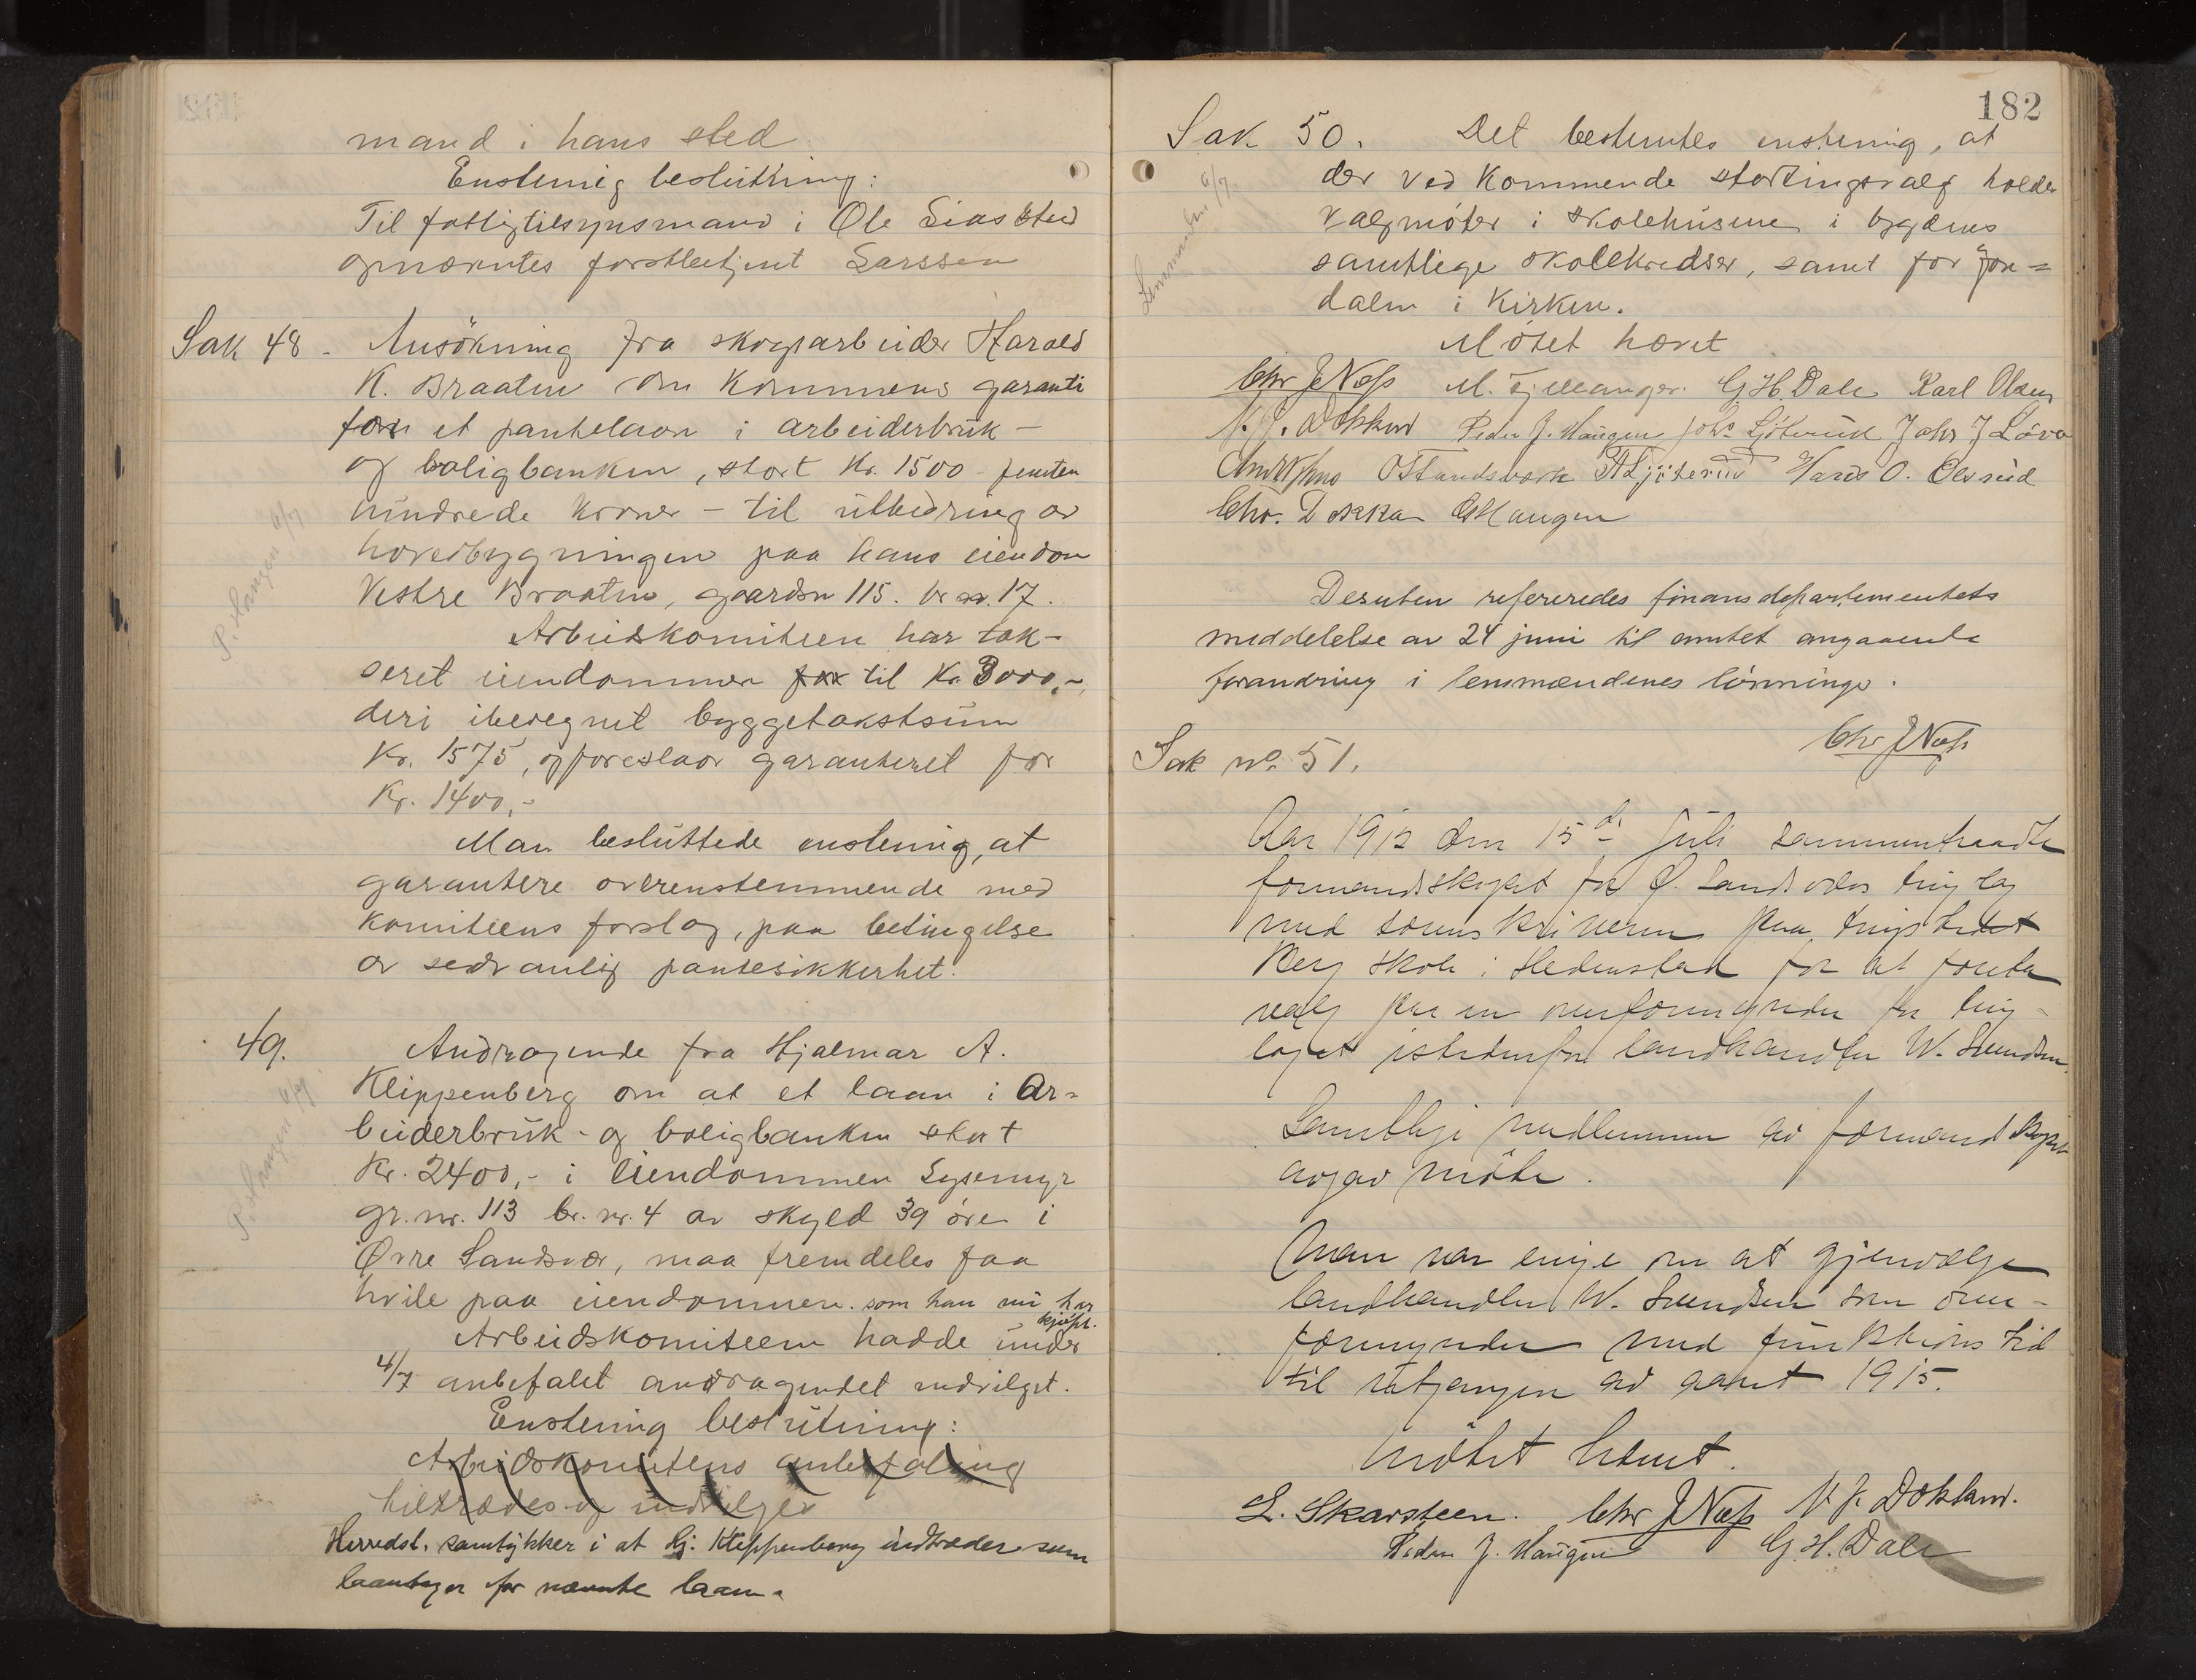 mand i hans sted
Enstemig beslutning:
Til fattigtilsynsmand i Ole Lias sted
opnævntes forstbetjent Larssen
Sak 48 - Ansökning fra skogsarbeider Harald
K. Braaten om kommunens garanti
for et pantelaan i arbeiderbruk-
og boligbanken, stort Kr. 1500 - femten
hundrede kroner - til utbedring av
hovedbygningen paa hans eiendom
Vestre Braaten, gaardsn 115. br. nr. 17.
Arbeidskomiteen har tak-
seret eiendommen til Kr. 3000,-,
deri iberegnet byggetakstsum
Kr. 1575, og foreslaar garanteret for
Kr. 1400,-
Man besluttede enstemig, at
garantere overensstemmende med
komiteens forslag, paa betingelse
av sedvanlig pantesikkerhet.
P. Haugen 6/7
49. Andragende fra Hjalmar A.
Klippenberg om at et laan i Ar-
beiderbruk- og boligbanken stort
Kr. 2400,- i eiendommen Lysemyr
gr. nr. 113 br. nr. 4 av skyld 39 øre i
Øvre Sandsvær, maa fremdeles faa
hvile paa eiendommen. som han nu har
kjøpt.
Arbeidskomiteen hadde under
4/7 anbefalet andragendet indvilget.
P. Haugen 6/7
Enstemig beslutning:
Arbeidskomiteens anbefaling
tiltrædes og indvilges
Herredst. samtykker i at Hj. Klippenberg indtræder som
laantager for nævnte laan.
182
Sak 50. Det bestemtes enstemig, at
der ved kommende stortingsvalg holdes
valgmøter i skolehusene i bygdens
samtlige skolekredser, samt for Jon-
dalen i Kirken.
Lensmanden 6/7
Møtet hævet
Chr J Næss M. Tjellanger. G. H. Dale Karl Olsen
N. J. Dokken Peder J. Haugen Johs Sjöterud Johs J Løver
O Standsværk A Sjöterud Hans O. Olsrud
Chr. Dokka G Haugen
Desuten refereredes finansdepartementets
meddelelse av 24 juni til amtet angaaende
forandring i lensmændenes lönninger.
Chr J Næss
Sak no. 51.
Aar 1912 den 15de Juli sammentraadte
formandskapet for Ø. Sandsvær tinglag
med sorenskriveren paa tingstedet
Berg skole i Hedenstad for at foreta
valg paa en overformynder for ting-
laget istedenfor landhandler W. Svendsen.
Samtlige medlemmer av formandskapet
avgav møte.
Man var enige om at gjenvælge
landhandler W. Svendsen som over-
formynder med funktionstid
til utgangen av aaret 1915.
Møtet hævet.
L. Skarsteen. Chr J Næss N. J. Dokken.
Peder J. Haugen G. H. Dale